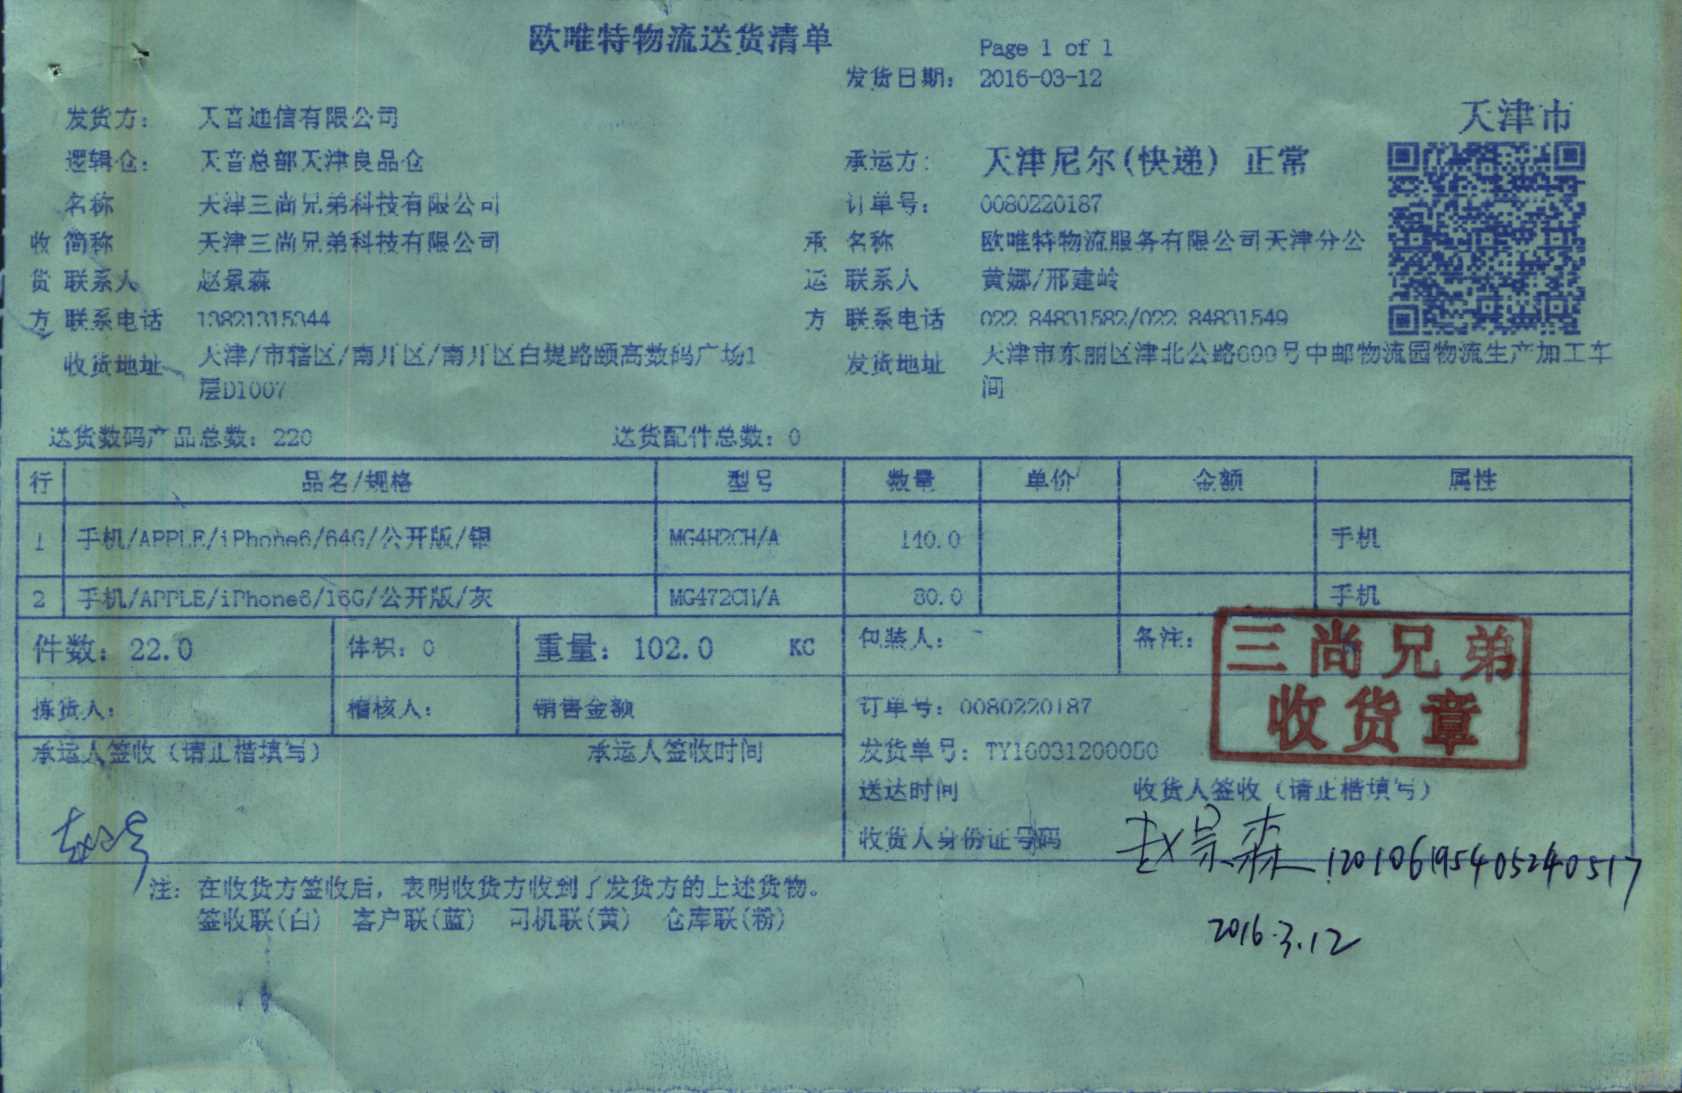 欧唯特物流送货清单
Page 1 of 1
发货日期： 2016-03-12
天津市
发货方： 天音通信有限公司
逻辑仓： 天音总部天津良品仓 承运方： 天津尼尔(快递) 正常
名称 天津三尚兄弟科技有限公司 订单号： 0080220187
收 简称 天津三尚兄弟科技有限公司 承 名称 欧唯特物流服务有限公司天津分公
货 联系人 赵景森 运 联系人 黄娜/邢建岭
方 联系电话 13821315344 方 联系电话 022 84831582/022 84831549
收货地址 天津/市辖区/南开区/南开区白堤路颐高数码广场1 发货地址 天津市东丽区津北公路699号中邮物流园物流生产加工车
层D1007 间
送货数码产品总数：220 送货配件总数：0
行 品名/规格 型号 数量 单价 金额 属性
1 手机/APPLE/iPhone6/64G/公开版/银 MG4H2CH/A 140.0 手机
2 手机/APPLE/iPhone6/16G/公开版/灰 MG472CH/A 80.0 手机
件数：22.0 体积：0 重量：102.0 KG 包装人： 备注：
三尚兄弟
收货章
拣货人： 稽核人： 销售金额 订单号：0080220187
承运人签收（请正楷填写） 承运人签收时间 发货单号：TY16031200050
送达时间 收货人签收（请正楷填写）
收货人身份证号码 赵景森 120106195405240517
2016.3.12
注：在收货方签收后，表明收货方收到了发货方的上述货物。
签收联(白) 客户联(蓝) 司机联(黄) 仓库联(粉)